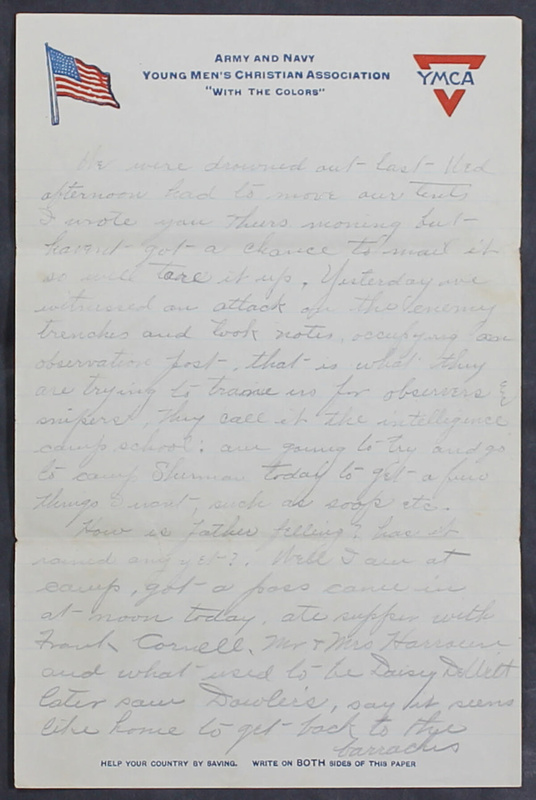 ARMY AND NAVY
YOUNG MEN'S CHRISTIAN ASSOCIATION
"WITH THE COLORS"
YMCA
We were drowned out last Wed
afternoon had to move our tents
I wrote you Thurs morning but
havent got a chance to mail it
so will tare it up. Yesterday we
witnessed an attack on the enemy
trenches and took notes, occupying an
observation post, that is what they
are trying to traine us for observers &
snipers, they call it the intelligence
camp school: am going to try and go
to camp Sherman today to get a few
things I want, such as soap etc.
How is father felling? has it
rained any yet?. Well I am at
camp, got a pass came in
at noon today, ate supper with
Frank Cornell, Mr & Mrs
and what used to be Daisy DeWitt
later saw Dowler's, say it seems
like home to get back to the
barracks
HELP YOUR COUNTRY BY SAVING. WRITE ON BOTH SIDES OF THIS PAPER